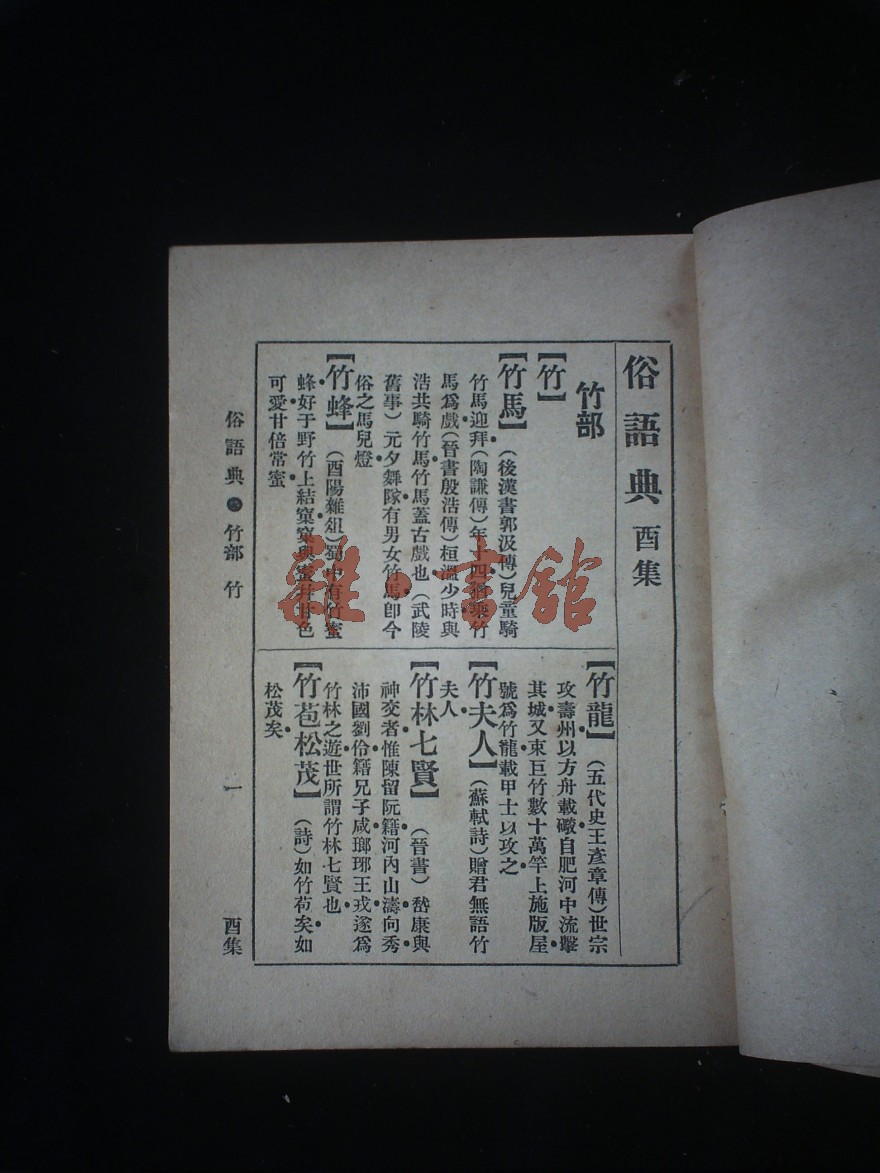 俗語典 酉集
竹部
【竹】
【竹馬】(後漢書郭汲傳)兒童騎
竹馬迎拜(陶謙傳)年十四猶乘竹
馬爲戲(晉書殷浩傳)桓溫少時與
浩共騎竹馬竹馬蓋古戲也(武陵
舊事)元夕舞隊有男女竹馬卽今
俗之馬兒燈
【竹蜂】(酉陽雜俎)蜀中有竹蜜
蜂好于野竹上結窠窠與蜜幷甘色
可愛甘倍常蜜
【竹龍】(五代史王彥章傳)世宗
攻壽州以方舟載礮自肥河中流擊
其城又束巨竹數十萬竿上施版屋
號爲竹龍載甲士以攻之
【竹夫人】(蘇軾詩)贈君無語竹
夫人
【竹林七賢】(晉書)嵆康與
神交者惟陳留阮籍河內山濤向秀
沛國劉伶籍兄子咸瑯琊王戎遂爲
竹林之遊世所謂竹林七賢也
【竹苞松茂】(詩)如竹苞矣如
松茂矣
俗語典 竹部 竹 一 酉集
雜書館